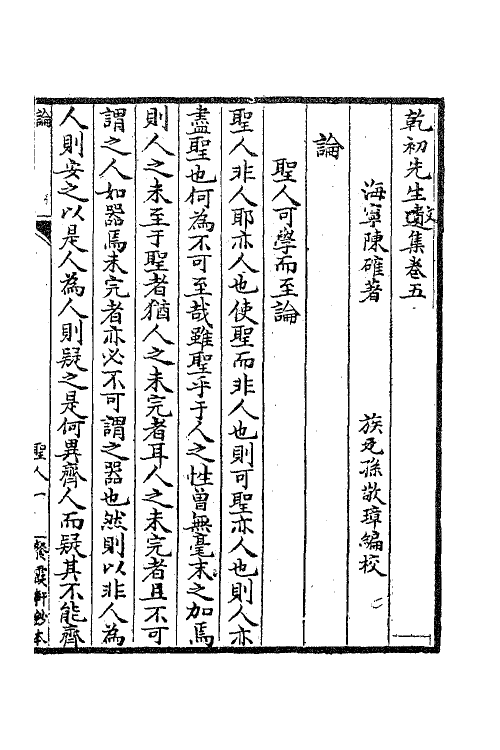 乾初先生遺文集卷五
海寧陳確著　族元孫敬璋編校
論
聖人可學而至論
聖人非人耶亦人也使聖而非人也則可聖亦人也則人亦
盡聖也何為不可至哉雖聖乎于人之性曾無毫末之加焉
則人之未至于聖者猶人之未完者耳人之未完者且不可
謂之人如器焉未完者亦必不可謂之器也然則以非人為
人則安之以是人為人則疑之是何異齊人而疑其不能齊
論　聖人一　餐霞軒鈔本